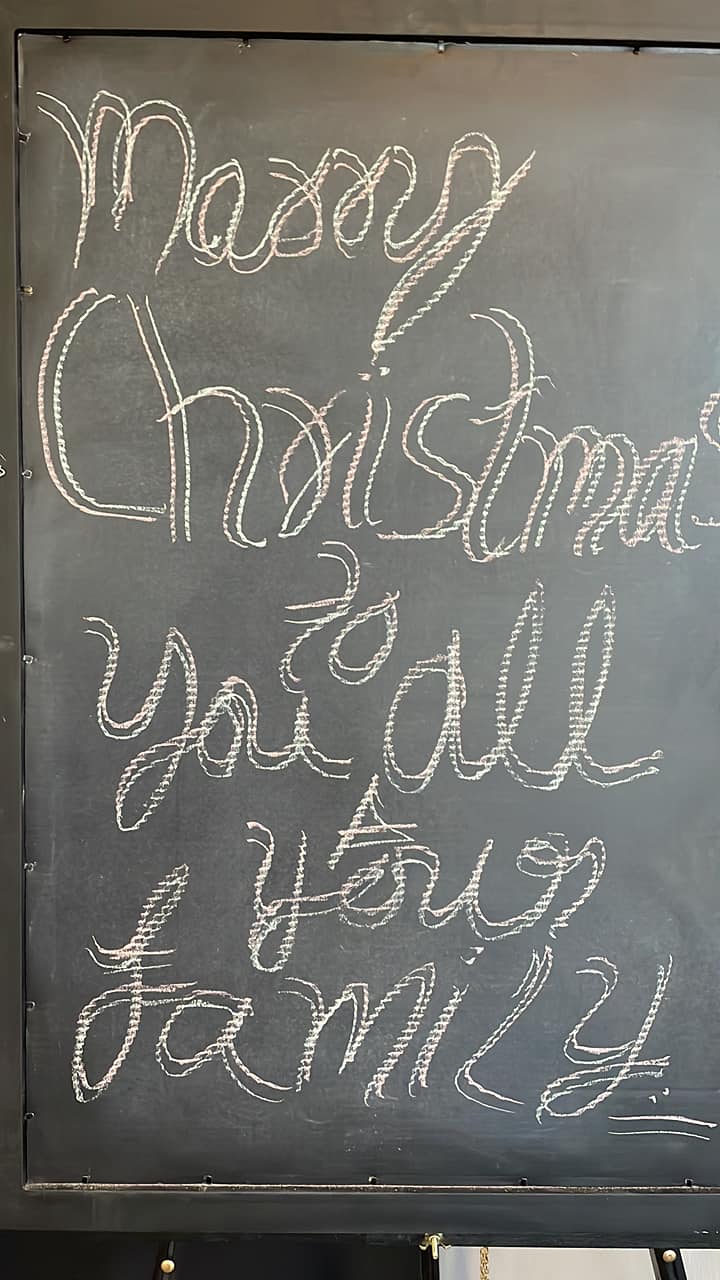 Marry
Christmas
to
you all
your
family